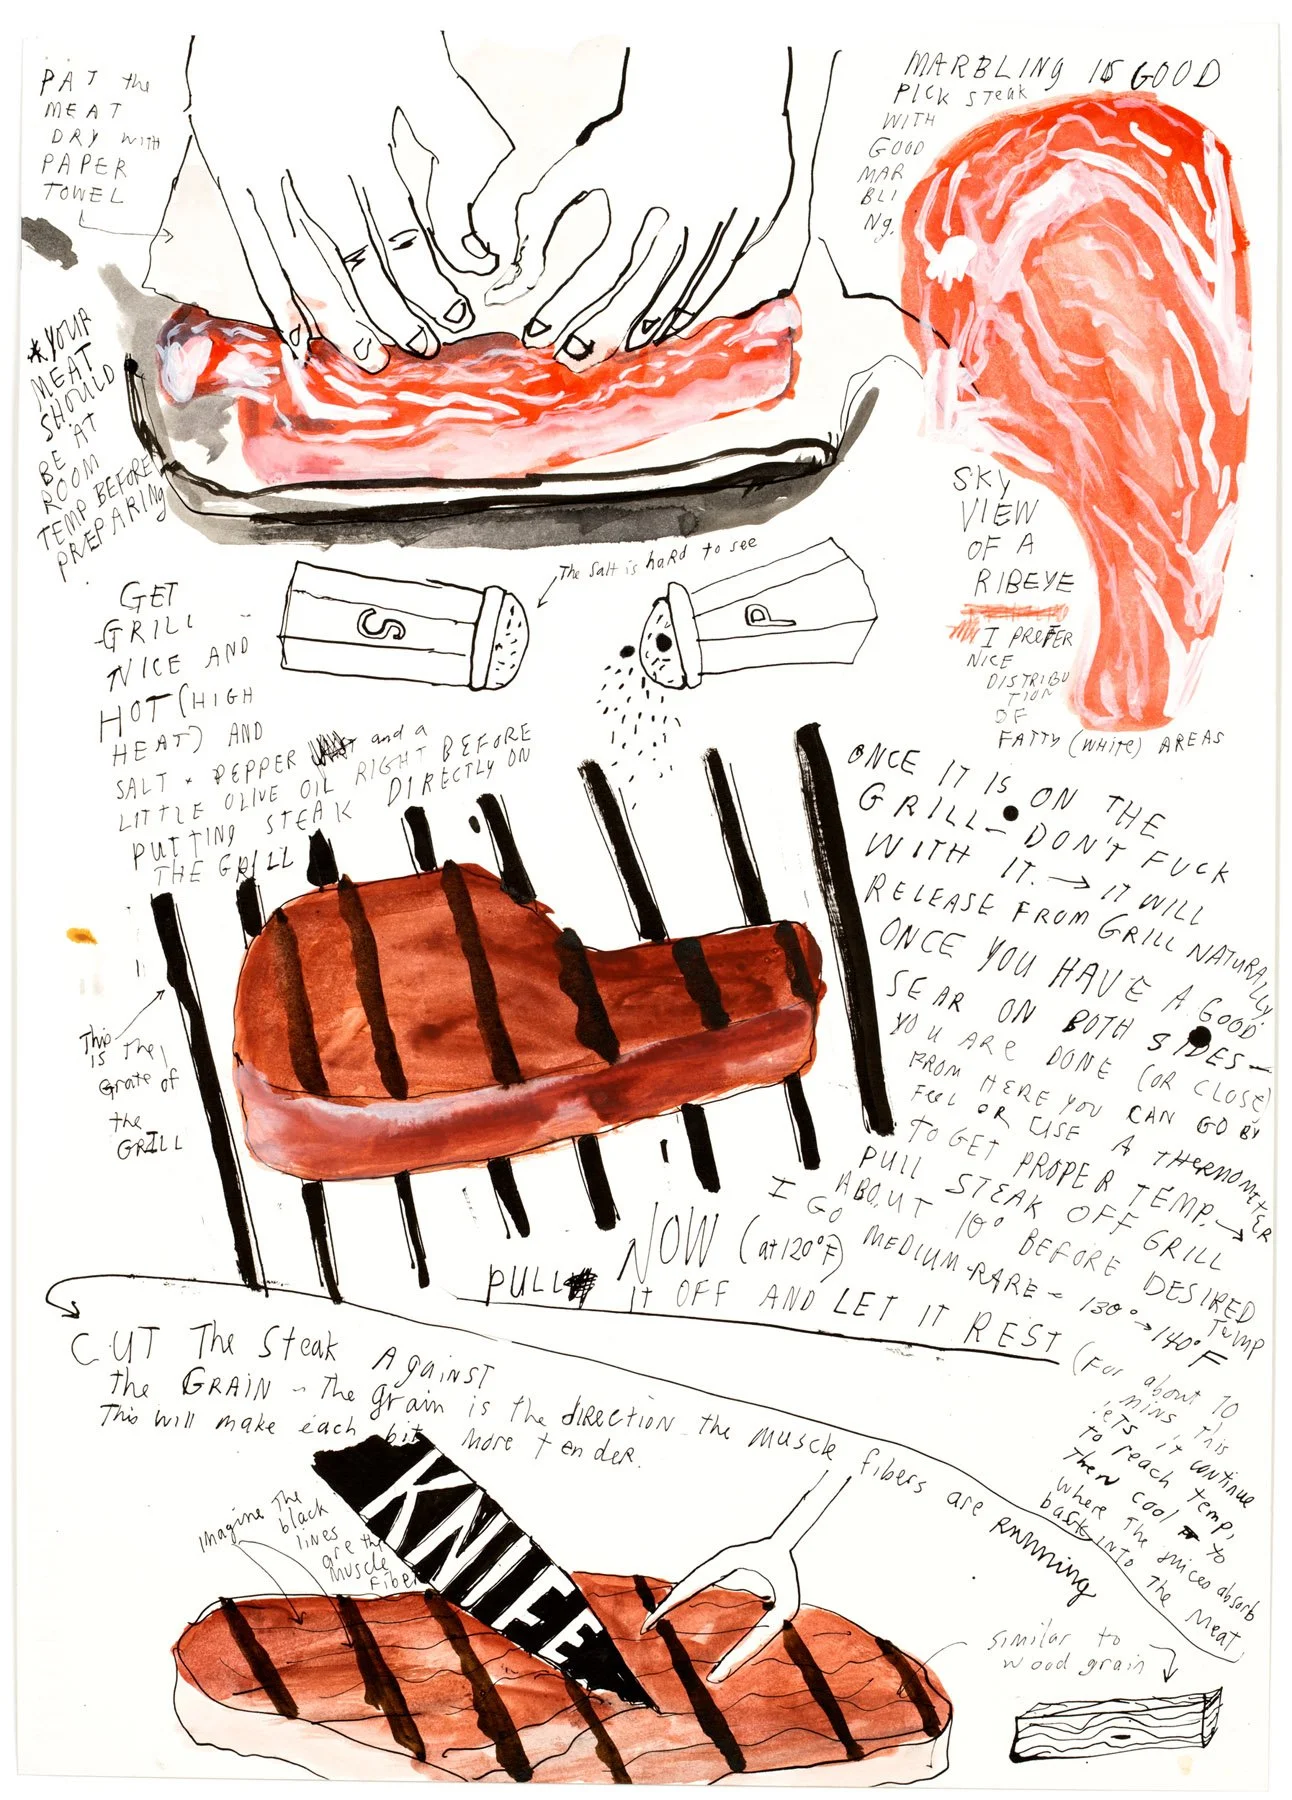 PAT the
MEAT
DRY WITH
PAPER
TOWEL
MARBLING IS GOOD
PICK STEAK
WITH
GOOD
MAR
BLI
Ng.
*YOUR
MEAT
SHOULD
BE AT
ROOM
TEMP BEFORE
PREPARING
SKY
VIEW
OF A
RIBEYE
I PREFER
NICE
DISTRIBU
TION
OF
FATTY (WHITE) AREAS
The Salt is hard to see
S
P
GET
GRILL
NICE AND
HOT (HIGH
HEAT) AND
SALT + PEPPER and a
LITTLE OLIVE OIL RIGHT BEFORE
PUTTING STEAK DIRECTLY ON
THE GRILL
ONCE IT IS ON THE
GRILL - DON'T FUCK
WITH IT. → IT WILL
RELEASE FROM GRILL NATURALLY.
ONCE YOU HAVE A GOOD
SEAR ON BOTH SIDES -
YOU ARE DONE (OR CLOSE)
FROM HERE YOU CAN GO BY
FEEL OR USE A THERMOMETER
TO GET PROPER TEMP. →
PULL STEAK OFF GRILL
ABOUT 10° BEFORE DESIRED TEMP
I GO MEDIUM-RARE - 130° → 140°F
This
is The
Grate of
the
GRILL
NOW (at 120°F)
PULL IT OFF AND LET IT REST (For about 10
mins, this
lets it continue
to reach temp,
Then cool to
where the juices absorb
back into the meat
CUT The Steak AgainST
the GRAIN - The grain is the direction the muscle fibers are running
This will make each bit more tender.
Imagine The
black
lines
are the
muscle
fiber
KNIFE
Similar to
wood grain